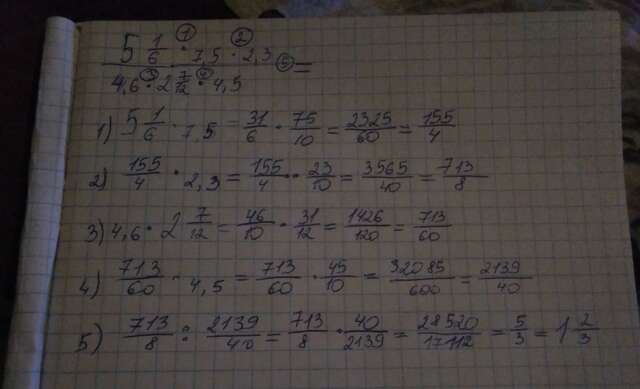 5 1/6 · 7,5 · 2,3 / 4,6 · 2 7/12 · 4,5 =
1) 5 1/6 · 7,5 = 31/6 · 75/10 = 2325/60 = 155/4
2) 155/4 · 2,3 = 155/4 · 23/10 = 3565/40 = 713/8
3) 4,6 · 2 7/12 = 46/10 · 31/12 = 1426/120 = 713/60
4) 713/60 · 4,5 = 713/60 · 45/10 = 32085/600 = 2139/40
5) 713/8 : 2139/40 = 713/8 · 40/2139 = 28520/17112 = 5/3 = 1 2/3